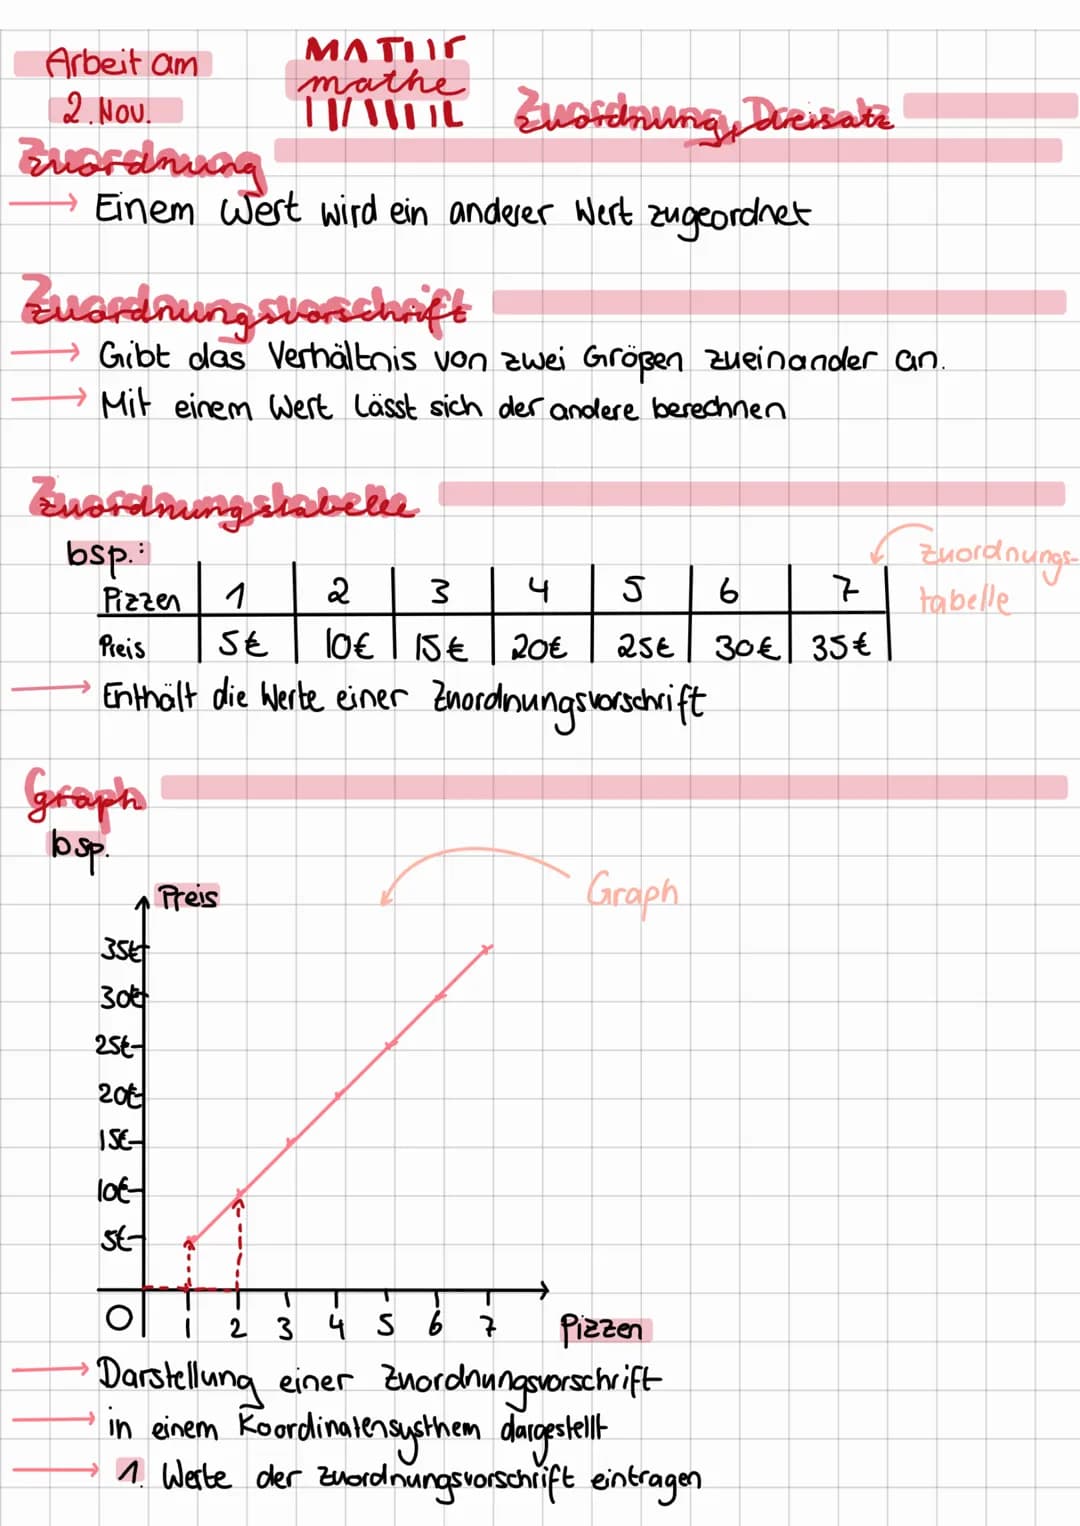 Arbeit am
2. Nov.
MATHE
mathe
Zuordnung, Dreisatz
Zuordnung
→ Einem Wert wird ein anderer Wert zugeordnet
Zuordnungsvorschrift
→ Gibt das Verhältnis von zwei Größen zueinander an.
→ Mit einem Wert lässt sich der andere berechnen
Zuordnungstabelle
bsp.:
Zuordnungs-
tabelle
Pizzen 1 2 3 4 5 6 7
Preis 5€ 10€ 15€ 20€ 25€ 30€ 35€
→ Enthält die Werte einer Zuordnungsvorschrift
Graph
bsp.
Preis
Graph
35€
30€
25€
20€
15€
10€
5€
0 1 2 3 4 5 6 7 Pizzen
→ Darstellung einer Zuordnungsvorschrift
→ in einem Koordinatensysthem dargestellt
→ 1. Werte der Zuordnungsvorschrift eintragen